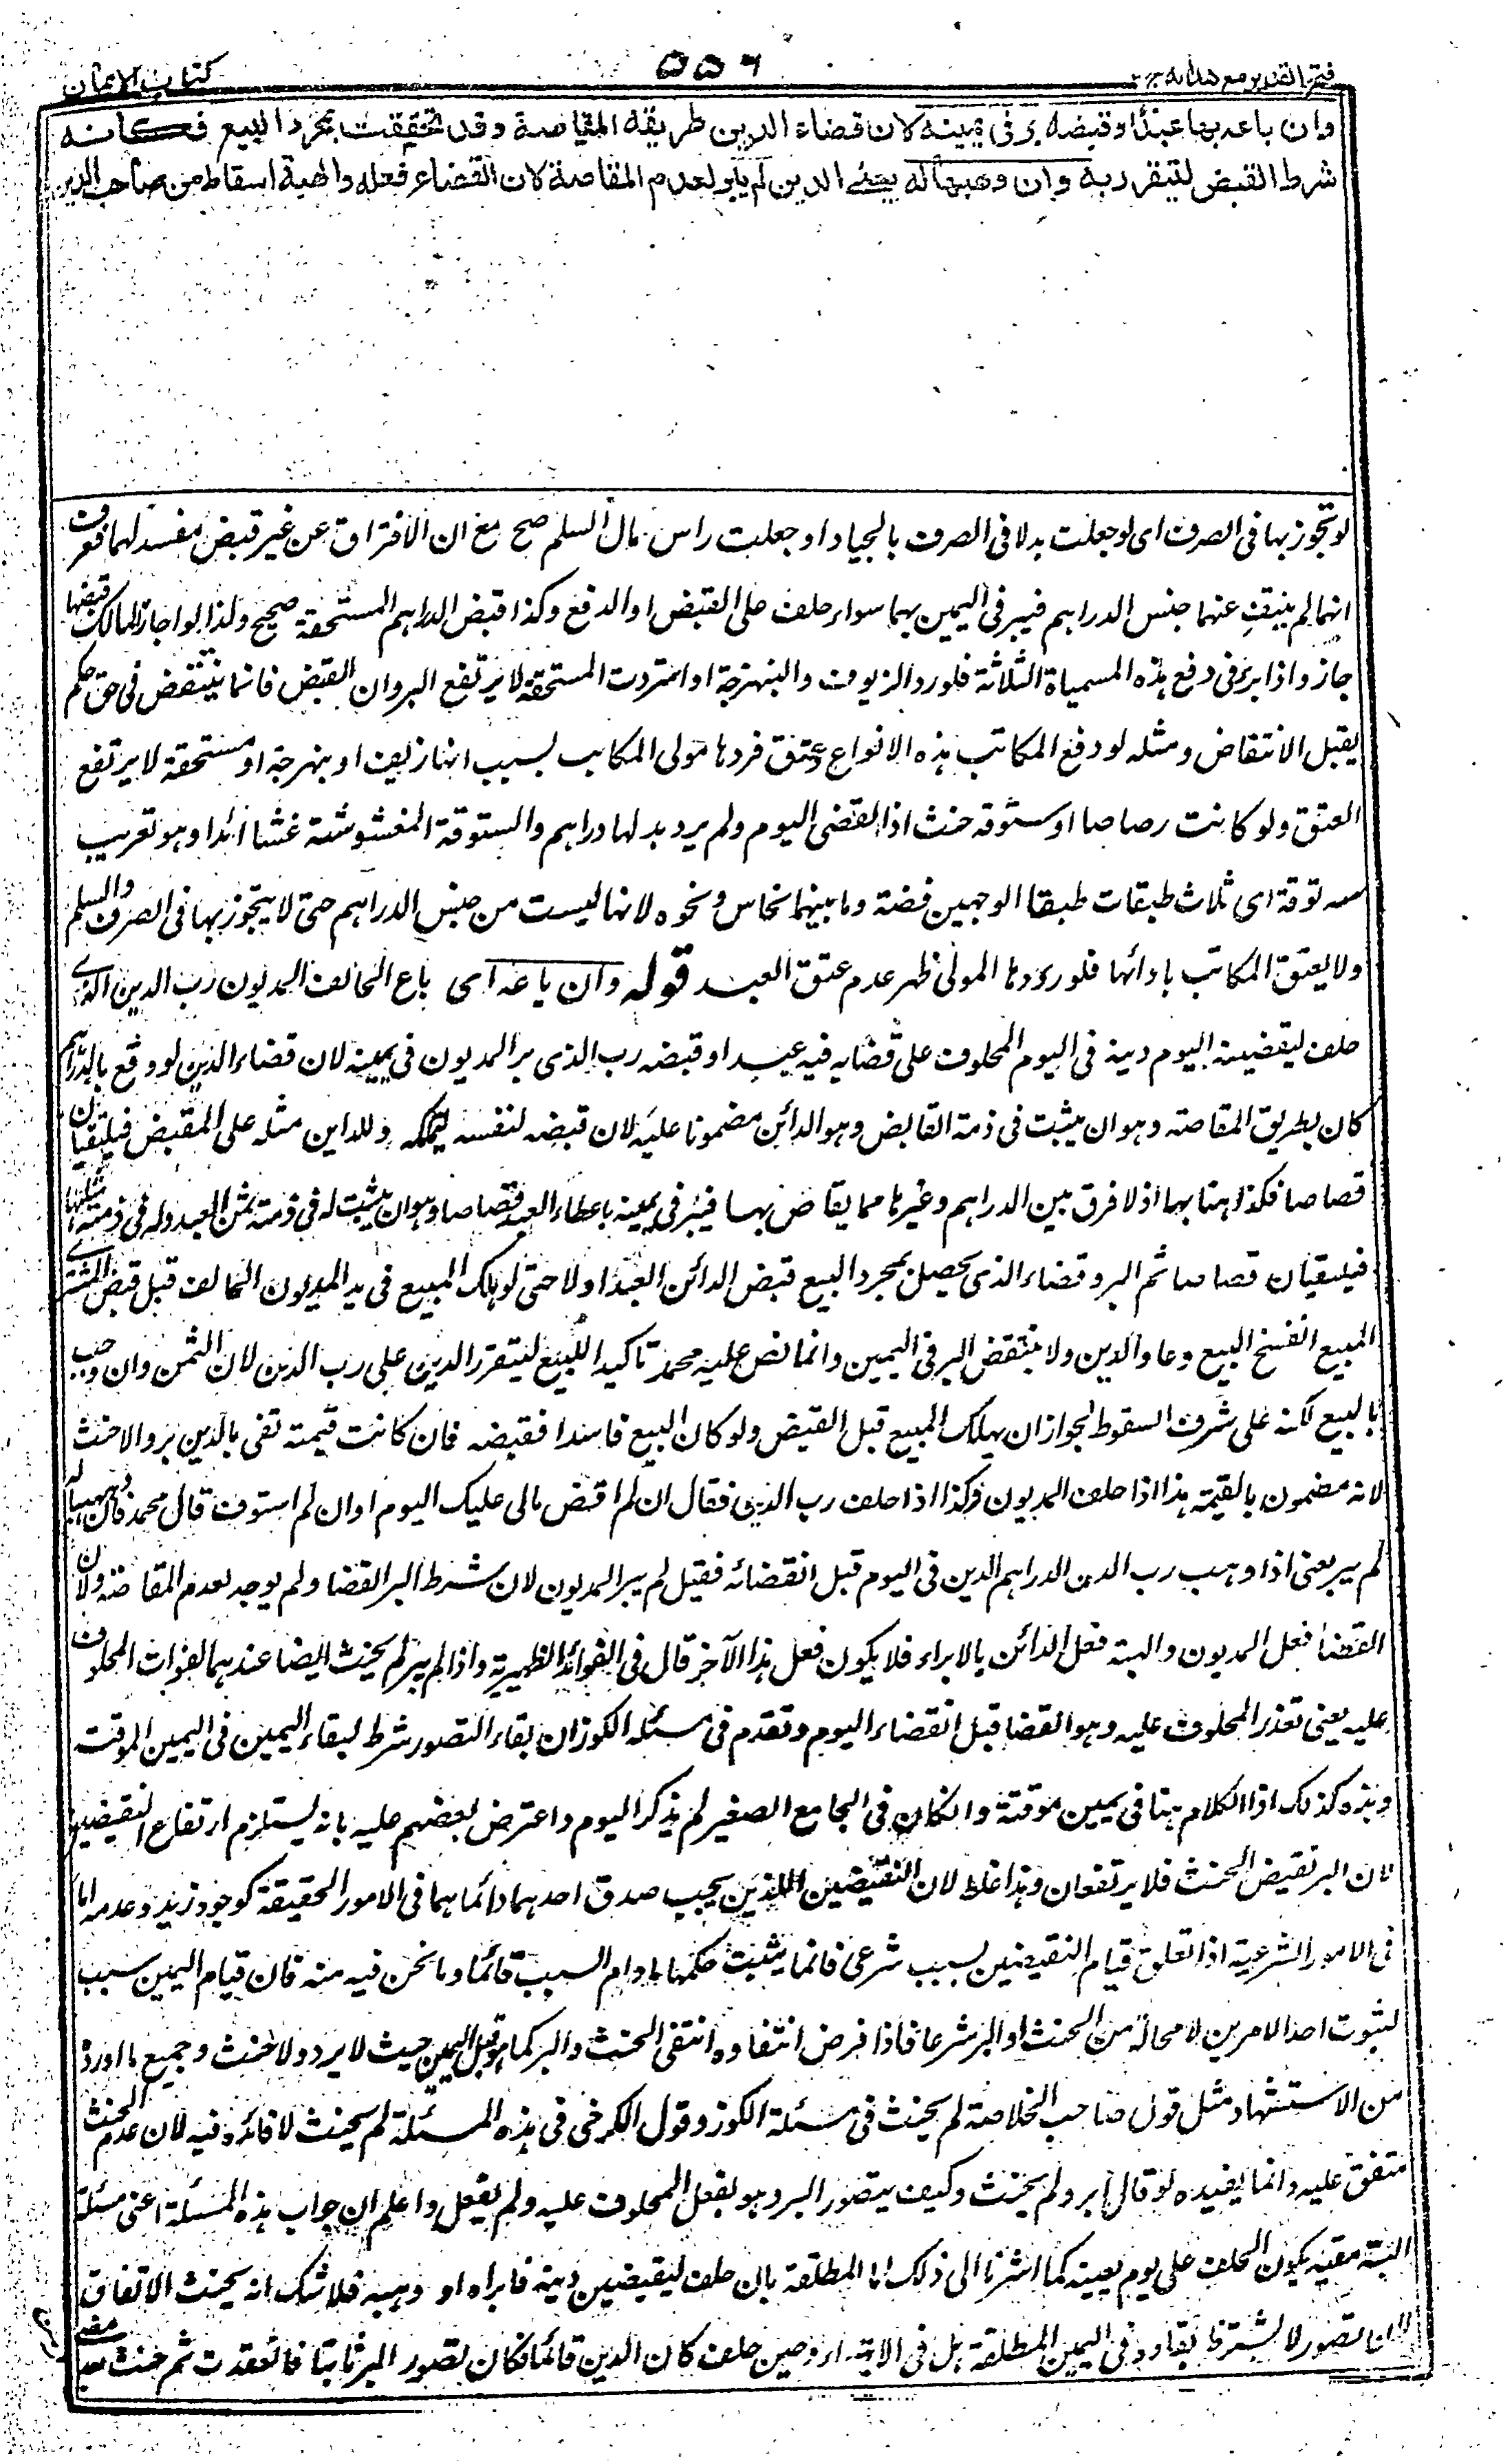 فتح القدير مع هدايه ج ٢
٥٥٦
كتاب الايمان
وان باعه بها عبدا وقبضه بر في يمينه لان قضاء الدين طريقه المقاصة وقد تحققت بمجرد البيع فكانه
شرط القبض ليتقرر به وان وهبها له يعني الدين لم يبر لعدم المقاصة لان القضاء فعله والهبة اسقاط من صاحب الدين
لو تجوز بها فى الصرف اى لو جعلت بدلا فى الصرف بالجياد او جعلت راس مال السلم صح مع ان الافتراق عن غير قبض مفسد لهما فعرف
انهما لم ينتف عنهما جنس الدراهم فيبر فى اليمين بهما سواء حلف على القبض او الدفع وكذا قبض الدراهم المستحقة صحيح ولذا لو اجاز المالك قبضها
جاز واذا بر فى دفع هذه المسمياة الثلاثة فلو رد الزيوف والنبهرجة او استردت المستحقة لا يرتفع البر وان القبض فانما ينتقض فى حق حكم
يقبل الانتقاض ومثله لو دفع المكاتب هذه الانواع وعتق فردها مولى المكاتب بسبب انها زيوف او بنهرجة او مستحقة لا يرتفع
العتق ولو كانت رصاصا او ستوقه حنث اذا انقضى اليوم ولم يرد بدلها دراهم والستوقة المغشوشة غشا زائدا وهو تعريب
سه توقة اى ثلاث طبقات طبقا الوجهين فضة وما بينهما نحاس ونحوه لانها ليست من جنس الدراهم حتى لا يتجوز بها فى الصرف والسلم
ولا يعتق المكاتب بادائها فلو ردها المولى ظهر عدم عتق العبد قوله وان باعه اى باع الحالف المديون رب الدين الذى
حلف ليقضينه اليوم دينه فى اليوم المحلوف على قضايه فيه عبدا وقبضه رب الذى بر المديون فى يمينه لان قضاء الدين لو وقع بالدراهم
كان بطريق المقاصة وهو ان يثبت فى ذمة القابض وهو الدائن مضمونا عليه لان قبضه لنفسه ليتملكه وللداين مثله على المقبض فيلتقيان
قصاصا فكذا هنا بها اذ لا فرق بين الدراهم وغيرها مما يقاض بها فيبر فى يمينه باعطاء العبد قصاصا وهو ان يثبت له فى ذمته ثمن العبد وله فى ذمته مثلها
فيلتقيان قصاصا ثم البر وقضاء الذى يحصل بمجرد البيع قبض الدائن العبد اولا حتى لو هلك المبيع فى يد المديون الحالف قبل قبض المشترى
المبيع انفسخ البيع وعاد الدين ولا ينتقض البر فى اليمين وانما نص عليه محمد تاكيدا للبيع ليتقرر الدين على رب الدين لان الثمن وان وجب
بالبيع لكنه على شرف السقوط لجواز ان يهلك المبيع قبل القبض ولو كان البيع فاسدا فقبضه فان كانت قيمته تفى بالدين بر والا حنث
لانه مضمون بالقيمة هذا اذا حلف المديون وكذا اذا حلف رب الدين فقال ان لم اقبض مالى عليك اليوم او ان لم استوف قال محمد فان وهبها له
لم يبر يعنى اذا وهب رب الدين الدراهم الدين فى اليوم قبل انقضائه فقيل لم يبر المديون لان شرط البر القضا ولم يوجد لعدم المقاصة ولان
القضا فعل المديون والهبة فعل الدائن بالابراء فلا يكون فعل هذا الآخر قال فى الفوائد الظهيرية واذا لم يبر لم يحنث ايضا عندهما لفوات المحلوف
عليه يعنى تعذر المحلوف عليه وهو القضا قبل انقضاء اليوم وتقدم فى مسئلة الكوز ان بقاء التصور شرط لبقاء اليمين فى اليمين الموقتة
وهذه كذلك اذ الكلام هنا فى يمين موقتة وان كان فى الجامع الصغير لم يذكر اليوم واعترض بعضهم عليه بانه يستلزم ارتفاع النقيضين
لان البر نقيض الحنث فلا يرتفعان وهذا غلط لان النقيضين اللذين يجب صدق احدهما دائما هما فى الامور الحقيقة كوجود زيد وعدمه اما
فى الامور الشرعية اذا تعلق قيام النقيضين بسبب شرعى فانما يثبت حكمها ما دام السبب قائما وما نحن فيه منه فان قيام اليمين سبب
لثبوت احد الامرين لا محالة من الحنث او البر شرعا فاذا فرض انتفاوه انتفى الحنث والبر كما هو قبل اليمين حيث لا بر ولا حنث وجميع ما اورد
من الاستشهاد مثل قول صاحب الخلاصة لم يحنث فى مسئلة الكوز وقول الكرخى فى هذه المسئلة لم يحنث لا فائدة فيه لان عدم الحنث
متفق عليه وانما يفيده لو قال بر ولم يحنث وكيف يتصور البر وهو بفعل المحلوف عليه ولم يفعل واعلم ان جواب هذه المسئلة اعنى مسئلة
الهبة مقيد بكون الحلف على يوم بعينه كما اشرنا الى ذلك اما المطلقة بان حلف ليقضين دينه فابراه او وهبه فلا شك انه يحنث الاتفاق
لان التصور لا يشترط بقاوه فى اليمين المطلقة بل فى الابتداء وحين حلف كان الدين قائما فكان تصور البر ثابتا فانعقدت ثم حنث بعد مضى